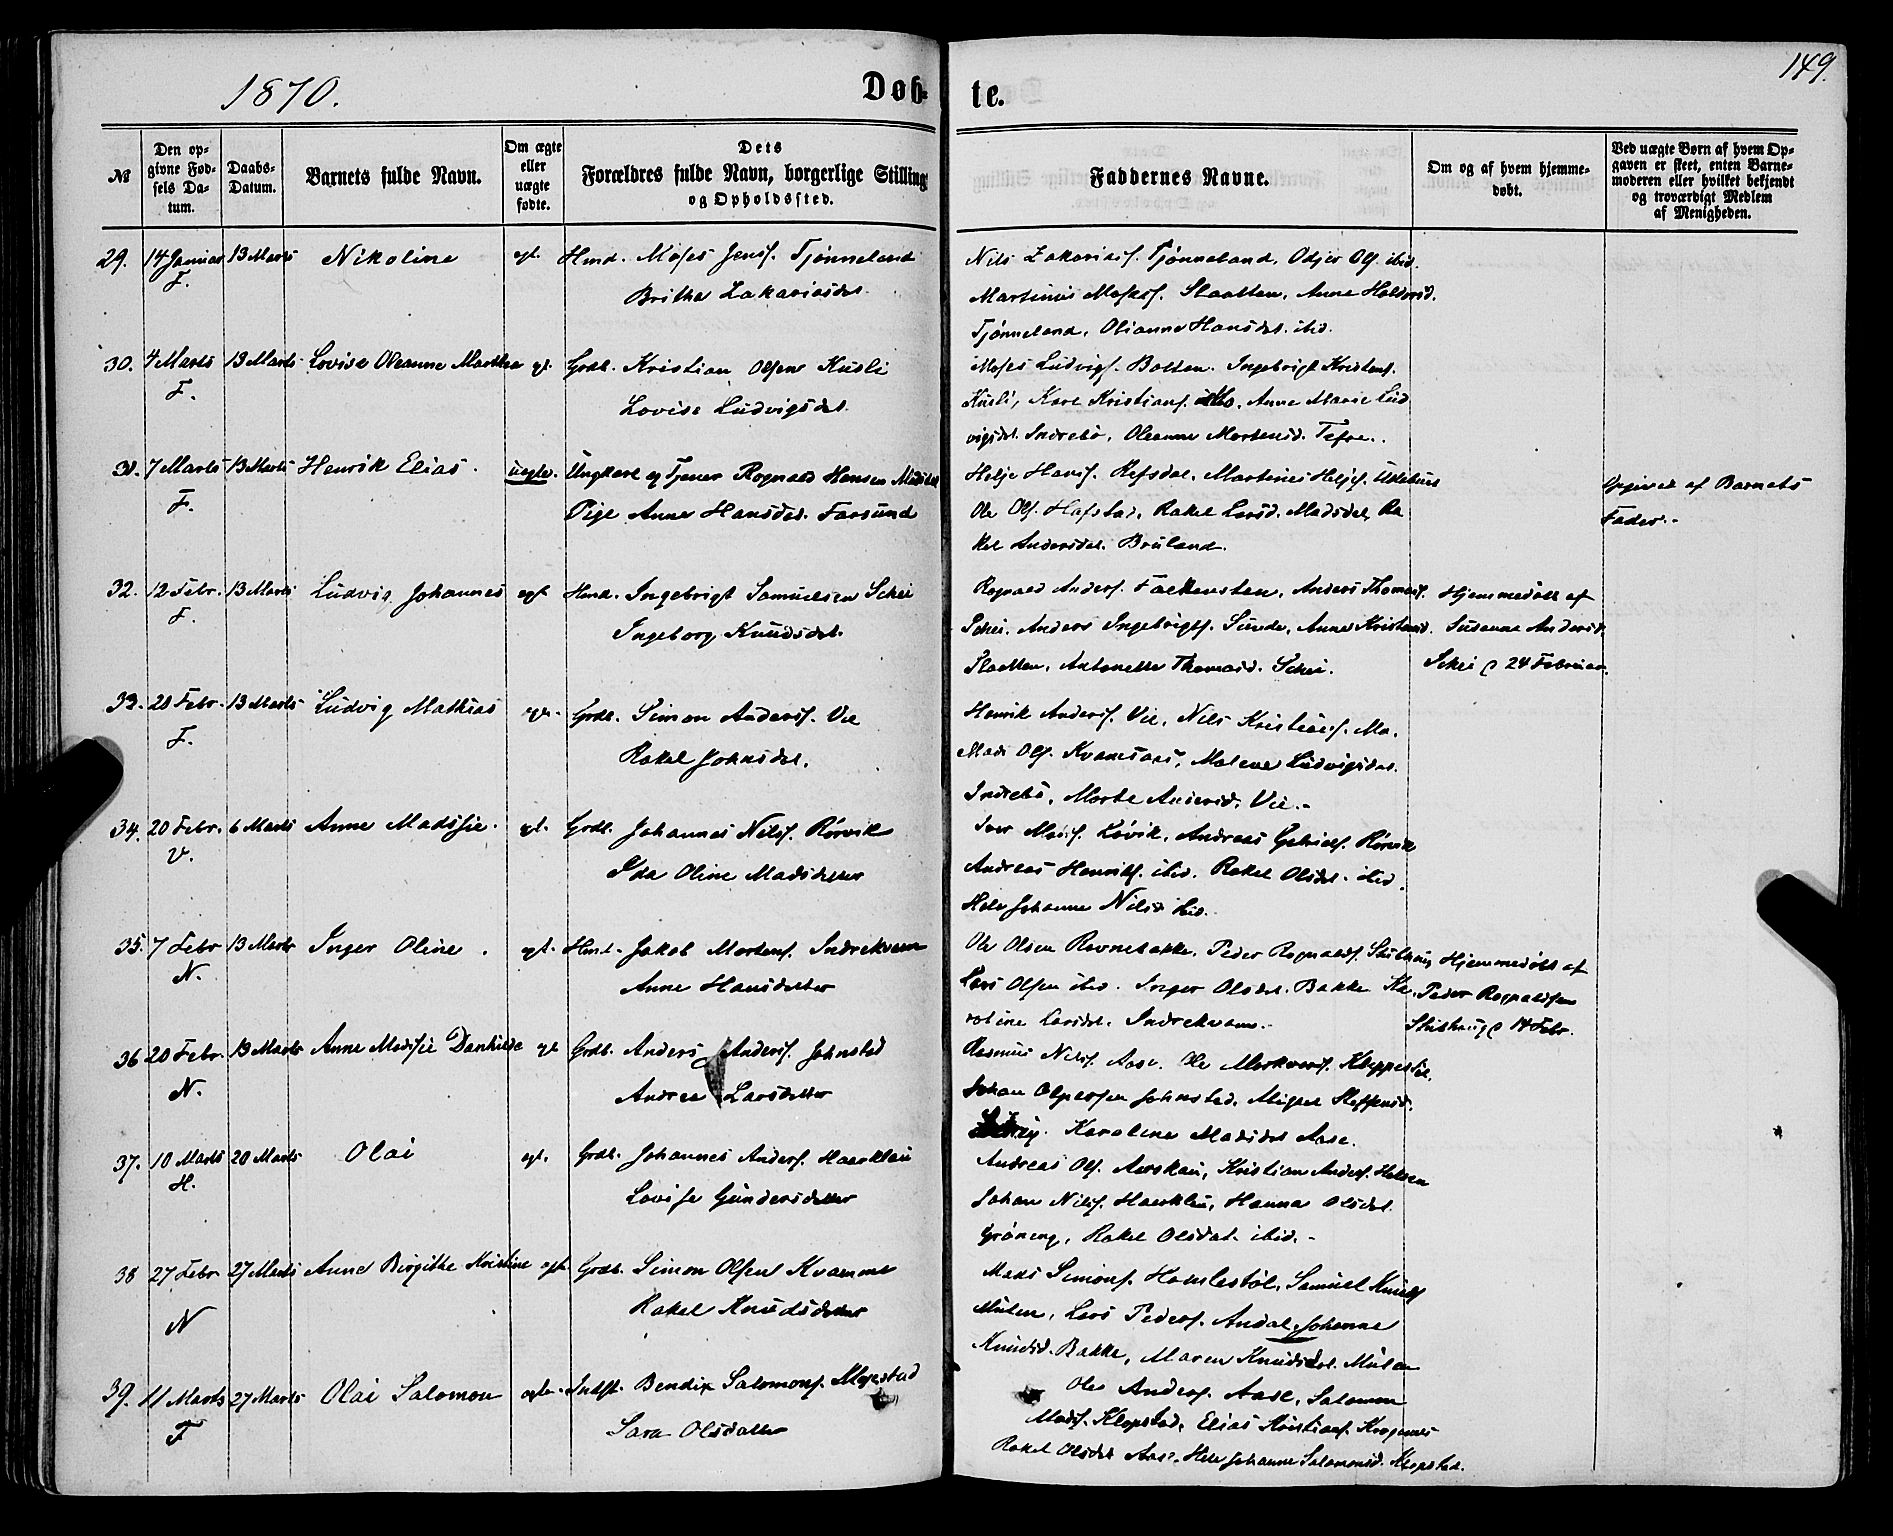 1870.
Døb-
te.
149.
№
Den op-
givne Fød-
sels Da-
tum.
Daabs-
Datum.
Barnets fulde Navn.
Om ægte
eller
uægte
fødte.
Dets
Forældres fulde Navn, borgerlige Stilling
og Opholdssted.
Faddernes Navne.
Om og af hvem hjemme-
døbt.
Ved uægte Børn af hvem Op-
gaven er skeet, enten Barne-
moderen eller hvilket bekjendt
og troværdigt Medlem
af Menigheden.
29. 14 Januar 13 Marts Nikoline egt. Hmd. Moses Jensf. Tjønneland
F. Britha Zakariasdt.
Nils Zakariasf. Tjønneland, Odjer Olf. ibid.
Martinus Mosesf. Slaatten, Anne
Tjønneland, Olianne Hansdt. ibid.
30. 4 Marts 13 Marts Lovise Oleanne Marthea egt. Grdb. Kristian Olsen Kusli
F. Lovise Ludvigsdt.
Moses Ludvigf. Bolten. Ingebrigt Kristenf.
Kusli, Kare Kristianf. Mo, Anne Marie Lud
vigsdt. Indrebø, Oleanne Mortensd. Tefre.
31. 7 Marts 13 Marts Henrik Elias. uegte. Ungkarl og Tjener Rognald Hansen
F. Pige Anne Hansdt. Farsund
Helje Hansf. Refsdal, Martinus Heljef.
Ole Olf. Hafstad, Rakel Larsd. Madsdal, Ra
kel Andersdt. Bruland.
Opgivet af Barnets
Fader.
32. 12 Febr. 13 Marts Ludvig Johannes egt Hmd. Ingebrigt Samuelsen Schei
F. Ingeborg Knudsdt.
Rognald Andersf. Falkensten, Anders Thomasf.
Schei. Anders Ingebrigtf. Sunde, Anne Kristensd.
Slaatten, Antonette Thomasd. Schei.
Hjemmedøbt af
Susanne Andersd.
Schei d 24 Februar.
33. 20 Febr. 13 Marts Ludvig Mathias egt. Grdb. Simon Andersf. Vie
F. Rakel Johnsdt.
Henrik Andersf. Vie, Nils Kristianf. Mo.
Mads Olf. Kvamsaas, Malene Ludvigsdt.
Indrebø, Marte Andersd. Vie.
34. 20 Febr. 6 Marts Anne Madssie. egt. Grdb. Johannes Nilsf. Rørvik
V. Ida Oline Madsdatter
Iver Madsf. Løvik, Andreas Gabrielf. Rørvik
Andreas Henrikf. ibid. Rakel Olsdt. ibid.
Hele Johanne Nilsd ibid.
35. 7 Febr 13 Marts Inger Oline. egt. Hmd. Jakob Mortensf. Indrekvam
N. Anne Hansdatter
Ole Olsen Ravnebakke, Peder Rognaldf. Stuhaug
Lars Olsen ibid. Inger Olsdt. Bakke Ka
roline Larsdt. Indrekvam.
Hjemmedøbt af
Peder Rognaldsen
Stuhaug d 14 Febr.
36 20 Febr. 13 Marts Anne Madssie Danhilde egt Grdb. Anders Andersf. Johnstad
N. Andrea Larsdatter
Rasmus Nilsf. Aase. Ole Markvorf. Kleppestøl.
Johan Olpersen Johnstad. Steffensd.
Karoline Madsdt Aase.
37. 10 Marts 20 Marts Olai egt. Grdb. Johannes Andersf. Haarklau
H. Lovise Gundersdatter
Andreas Olf. Aarskau, Kristian Andersf. Helsen
Johan Nilsf. Haarklau, Hanna Olsdt.
Grøning, Rakel Olsdat. ibid.
38 27 Febr. 27 Marts Anne Birgithe Kristine egt. Grdb. Simon Olsen Kvamme
N Rakel Knudsdatter
Mads Simonf. Hamlestøl, Samuel Knudsf
Mulen, Lars Pedersf. Andal, Johanne
Knudsd. Bakke, Maren Knudsdt. Mulen
39. 11 Marts 27 Marts Olai Salomon egte. Indst. Bendix Salomonf.
F Sara Olsdatter
Ole Andersf. Aase, Salomon
Madsf. Klopstad, Elias Kristianf.
Rakel Olsdt Aase, Hele Johanne Salomonsd. Klopstad.